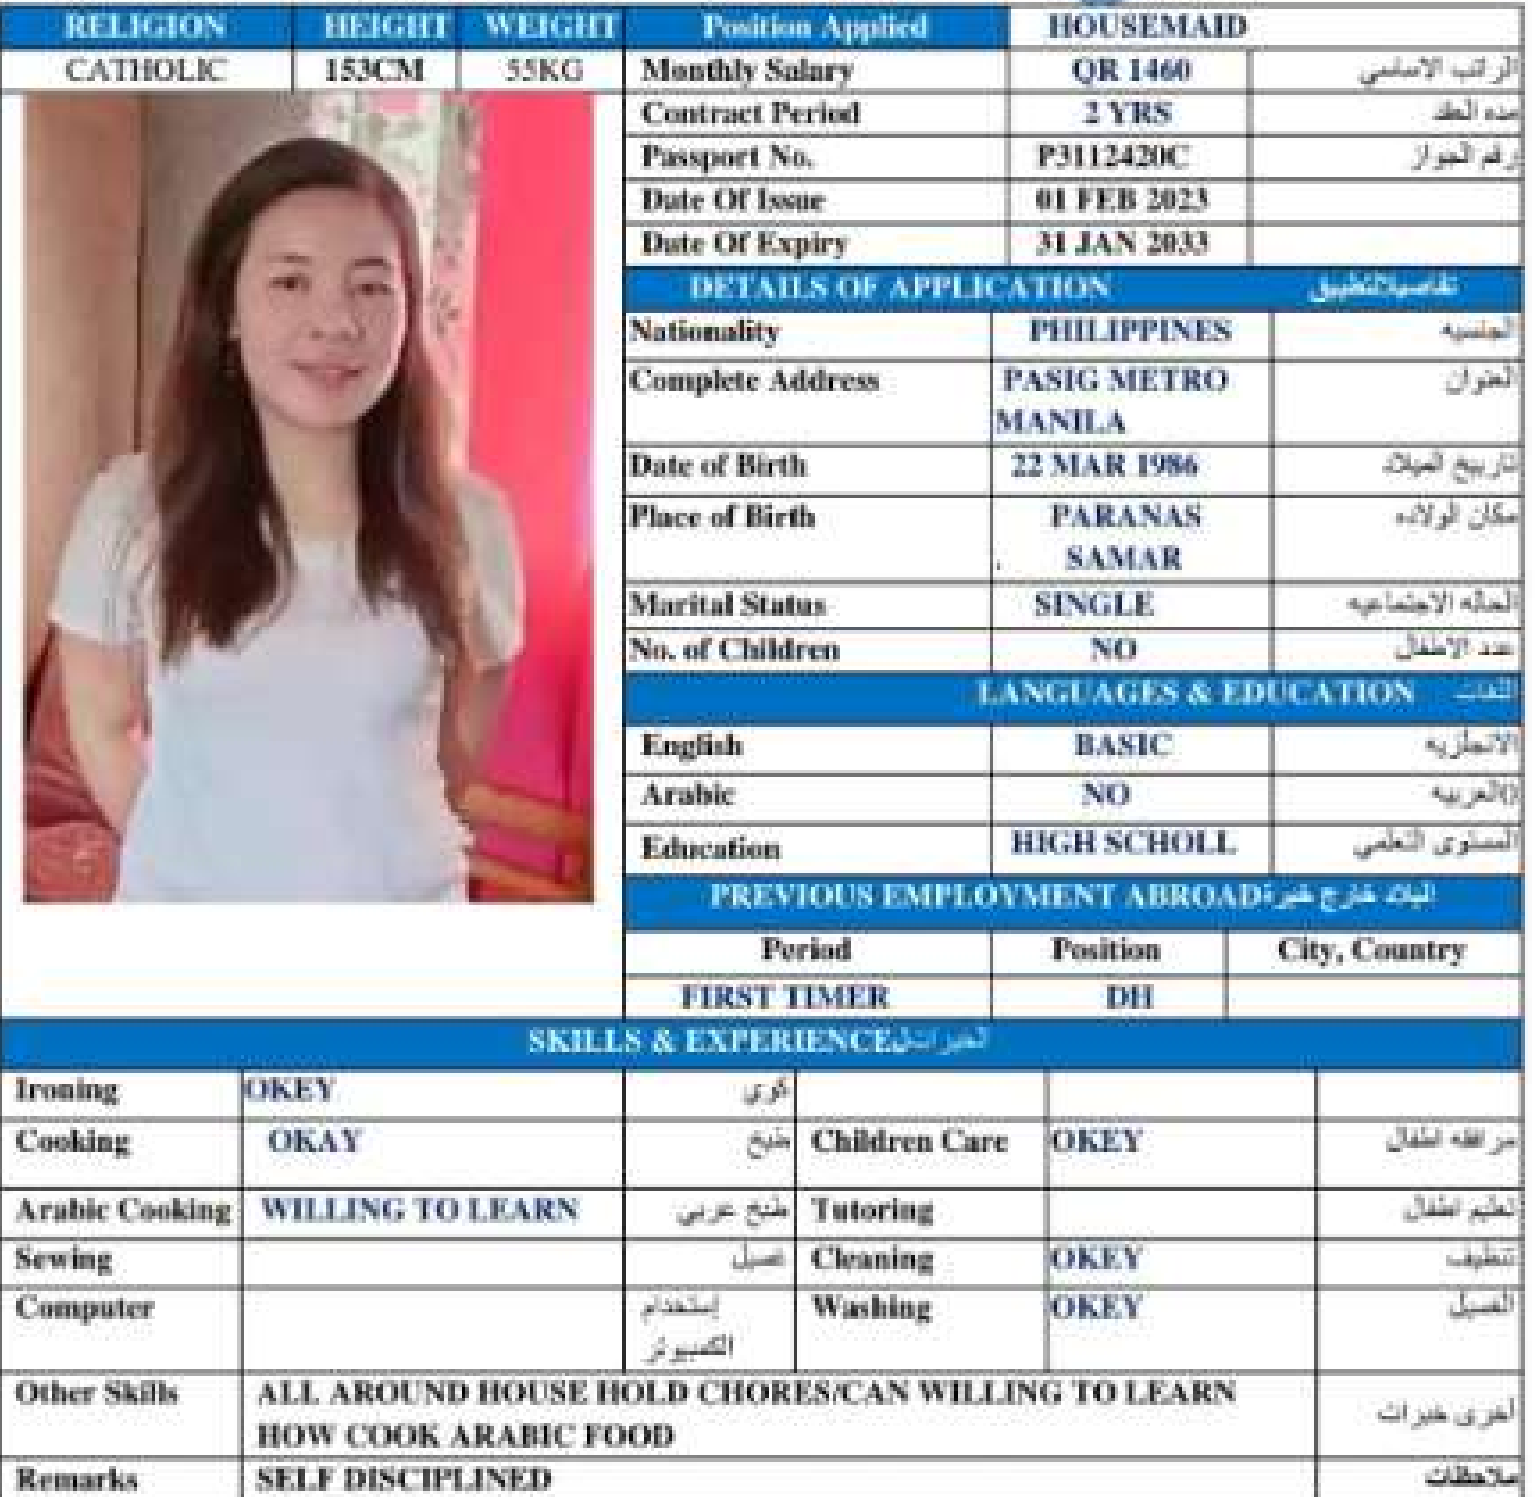 RELIGION HEIGHT WEIGHT Position Applied HOUSEMAID
CATHOLIC 153CM 55KG Monthly Salary QR 1460 الراتب الاساسي
Contract Period 2 YRS مده العقد
Passport No. P3112420C رقم الجواز
Date Of Issue 01 FEB 2023
Date Of Expiry 31 JAN 2033
DETAILS OF APPLICATION
Nationality PHILIPPINES الجنسيه
Complete Address PASIG METRO العنوان
MANILA
Date of Birth 22 MAR 1986 تاريخ الميلاد
Place of Birth PARANAS مكان الولاده
. SAMAR
Marital Status SINGLE الحاله الاجتماعيه
No. of Children NO عدد الاطفال
LANGUAGES & EDUCATION اللغات
English BASIC
Arabic NO العربيه
Education HIGH SCHOLL المستوى التعلمي
PREVIOUS EMPLOYMENT ABROAD البلاد خارج خبرة
Period Position City, Country
FIRST TIMER DH
SKILLS & EXPERIENCE
Ironing OKEY كوي
Cooking OKAY طبخ Children Care OKEY اطفال
Arabic Cooking WILLING TO LEARN طبخ عربي Tutoring تعليم اطفال
Sewing غسيل Cleaning OKEY تنظيف
Computer إستخدام Washing OKEY الغسيل
الكمبيوتر
Other Skills ALL AROUND HOUSE HOLD CHORES/CAN WILLING TO LEARN أخرى خبرات
HOW COOK ARABIC FOOD
Remarks SELF DISCIPLINED ملاحظات